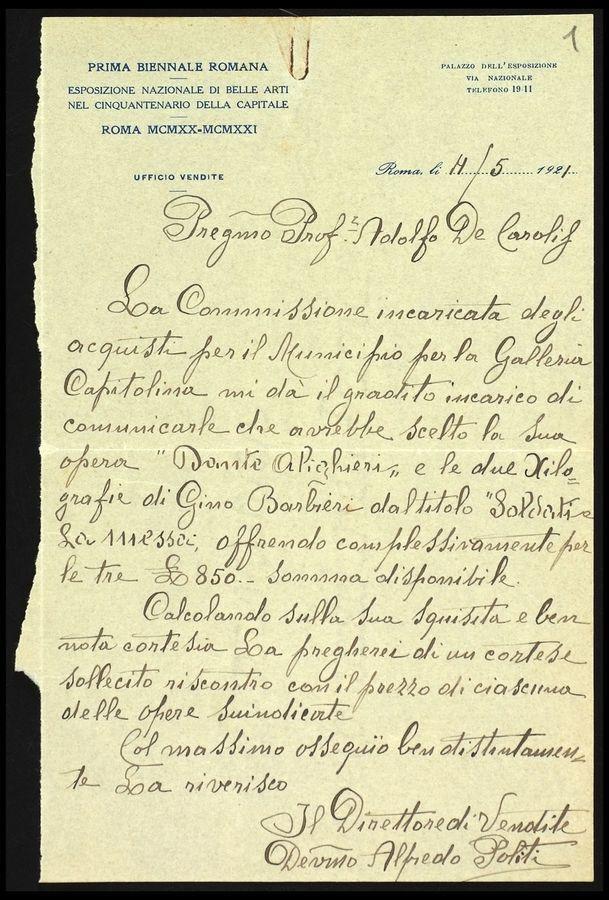 1
PRIMA BIENNALE ROMANA
ESPOSIZIONE NAZIONALE DI BELLE ARTI
NEL CINQUANTENARIO DELLA CAPITALE
ROMA MCMXX-MCMXXI
UFFICIO VENDITE
PALAZZO DELL'ESPOSIZIONE
VIA NAZIONALE
TELEFONO 19-11
Roma, li 11/5 1921
Pregmo Prof.r Adolfo De Carolis
La Commissione incaricata degli
acquisti per il Municipio per la Galleria
Capitolina mi dà il gradito incarico di
comunicarle che avrebbe scelto la Sua
opera "Dante Alighieri„ e le due Xilo=
grafie di Gino Barbieri dal titolo "Soldati e
La Messa, offrendo complessivamente per
le tre £ 850.- somma disponibile.
Calcolando sulla Sua squisita e ben
nota cortesia La pregherei di un cortese
sollecito riscontro con il prezzo di ciascuna
delle opere suindicate
Col massimo ossequio ben distintamen=
te La riverisco
Il Direttore di Vendite
Devmo Alfredo Politi